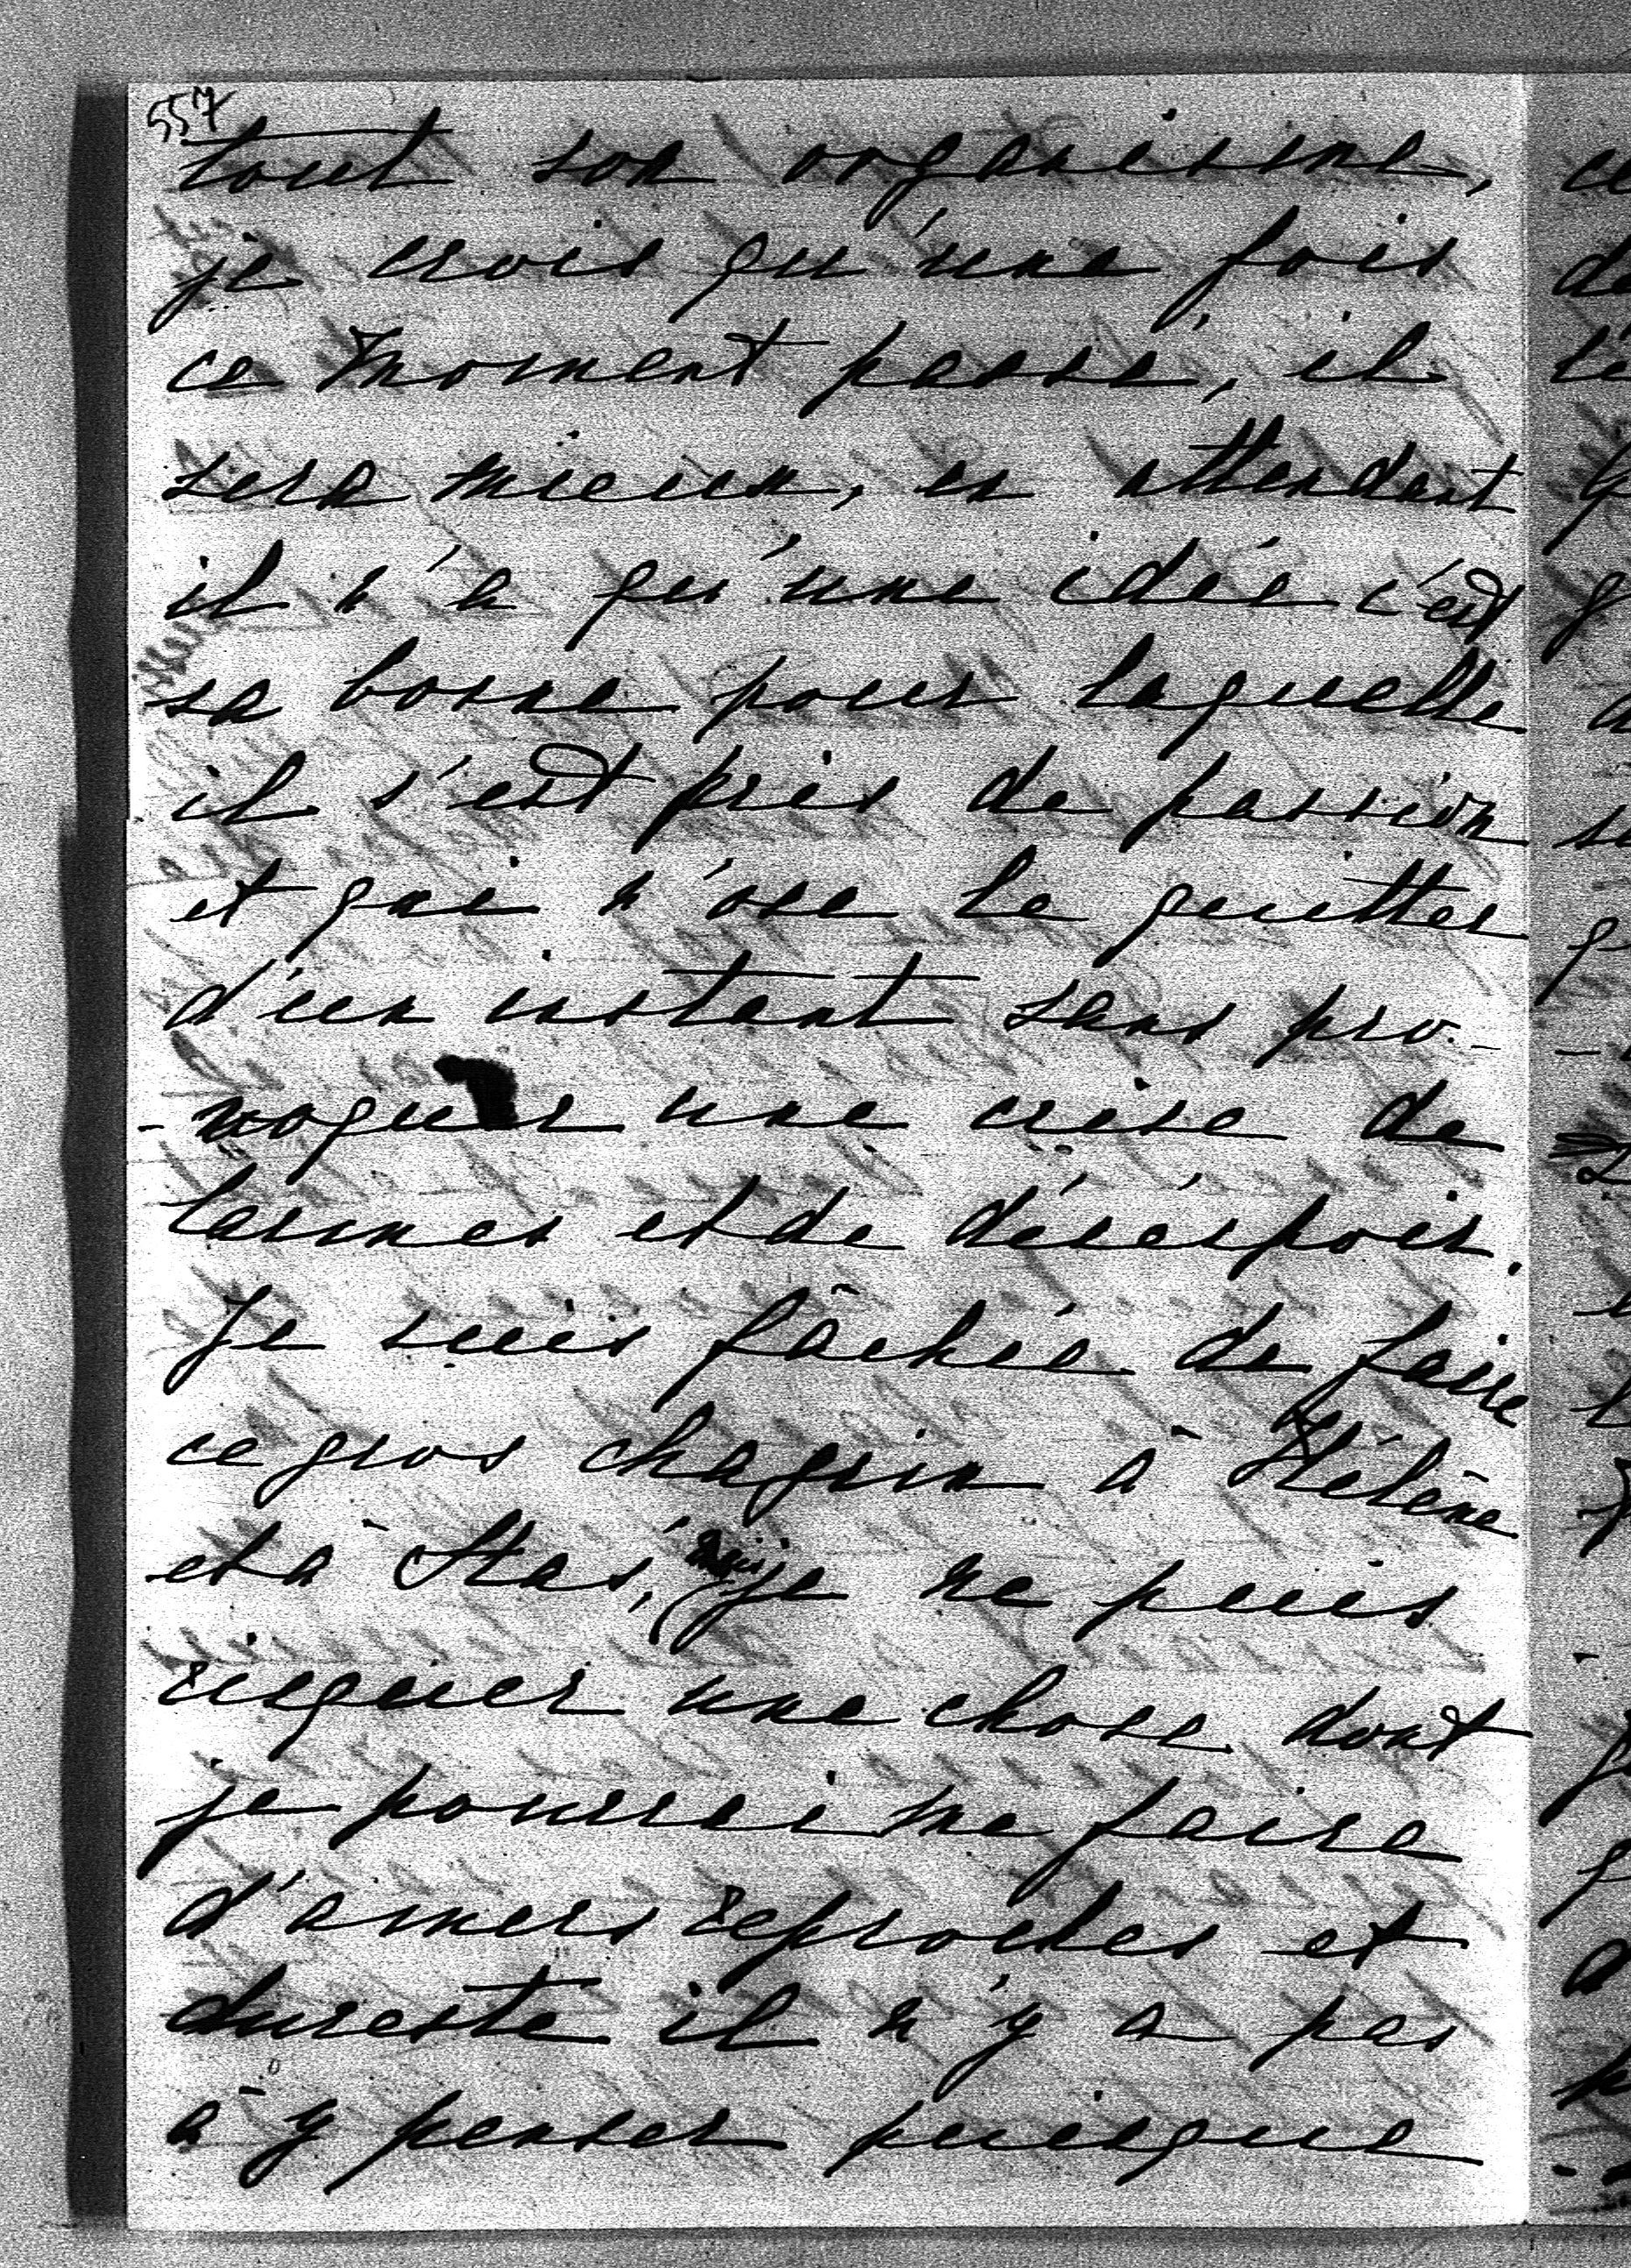 557
tout son organisme,
je crois qu'une fois
ce moment passé, il
sera mieux, en attendant
il n'a qu'une idée c'est
sa bonne pour laquelle
il s'est pris de passion
et qui n'ose le quitter
d'un instant sans pro-
-voquer une crise de
larmes et de désespoir.
Je suis fâchée de faire
ce gros chagrin à Hélène
et à Stas, mais je ne puis
risquer une chose dont
je pourrai me faire
d'amers reproches et
dureste il n'y a pas
à y penser puisque